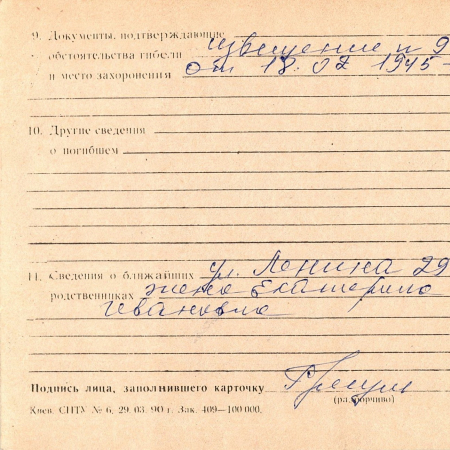 9. Документы, подтверждающие
обстоятельства гибели извещение п 9
и место захоронения от 18.07 1945-
10. Другие сведения
о погибшем
11. Сведения о ближайших ул. Ленина 29
родственниках жена Екатерина
Ивановна
Подпись лица, заполнившего карточку
(разборчиво)
Киев. СПТУ № 6. 29. 03. 90 г. Зак. 409—100 000.